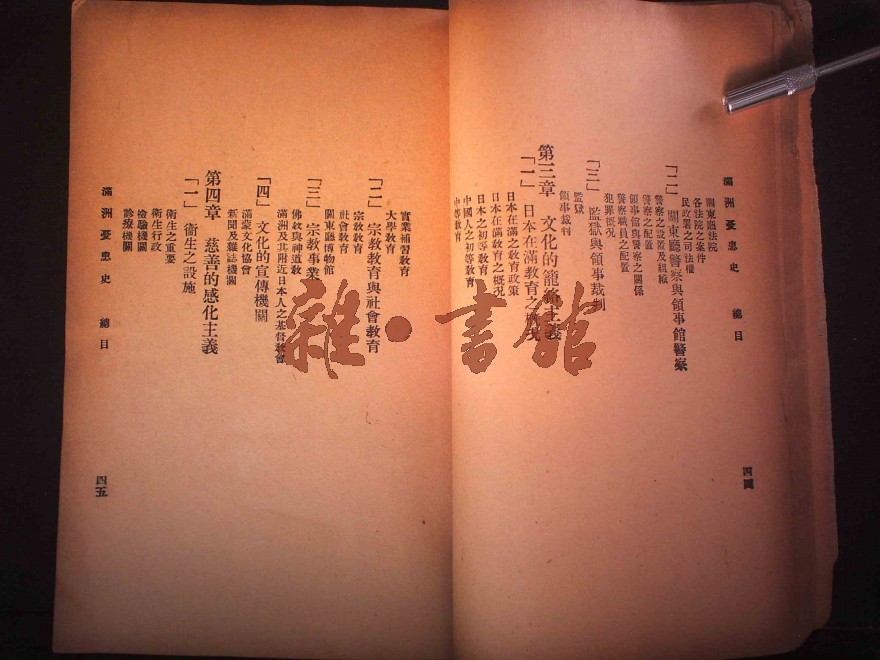 滿洲憂患史 總目
關東廳法院
各法院之案件
民政署之司法權
「二」 關東廳警察與領事館警察
警察之設置及組織
警察之配置
領事館與警察之關係
警察職員之配置
犯罪概况
「三」 監獄與領事裁制
監獄
領事裁判
第三章 文化的籠絡主義
「一」 日本在滿教育之概况
日本在滿之教育政策
日本在滿教育之概况
日本之初等教育
中國人之初等教育
中等教育
四四
實業補習教育
大學教育
「二」 宗教教育與社會教育
宗教教育
社會教育
關東廳博物館
「三」 宗教事業
佛教與神道教
滿洲及其附近日本人之基督教會
「四」 文化的宣傳機關
滿蒙文化協會
新聞及雜誌機關
第四章 慈善的感化主義
「一」 衞生之設施
衞生之重要
衞生行政
檢驗機關
診療機關
滿洲憂患史 總目
四五
雜·書館